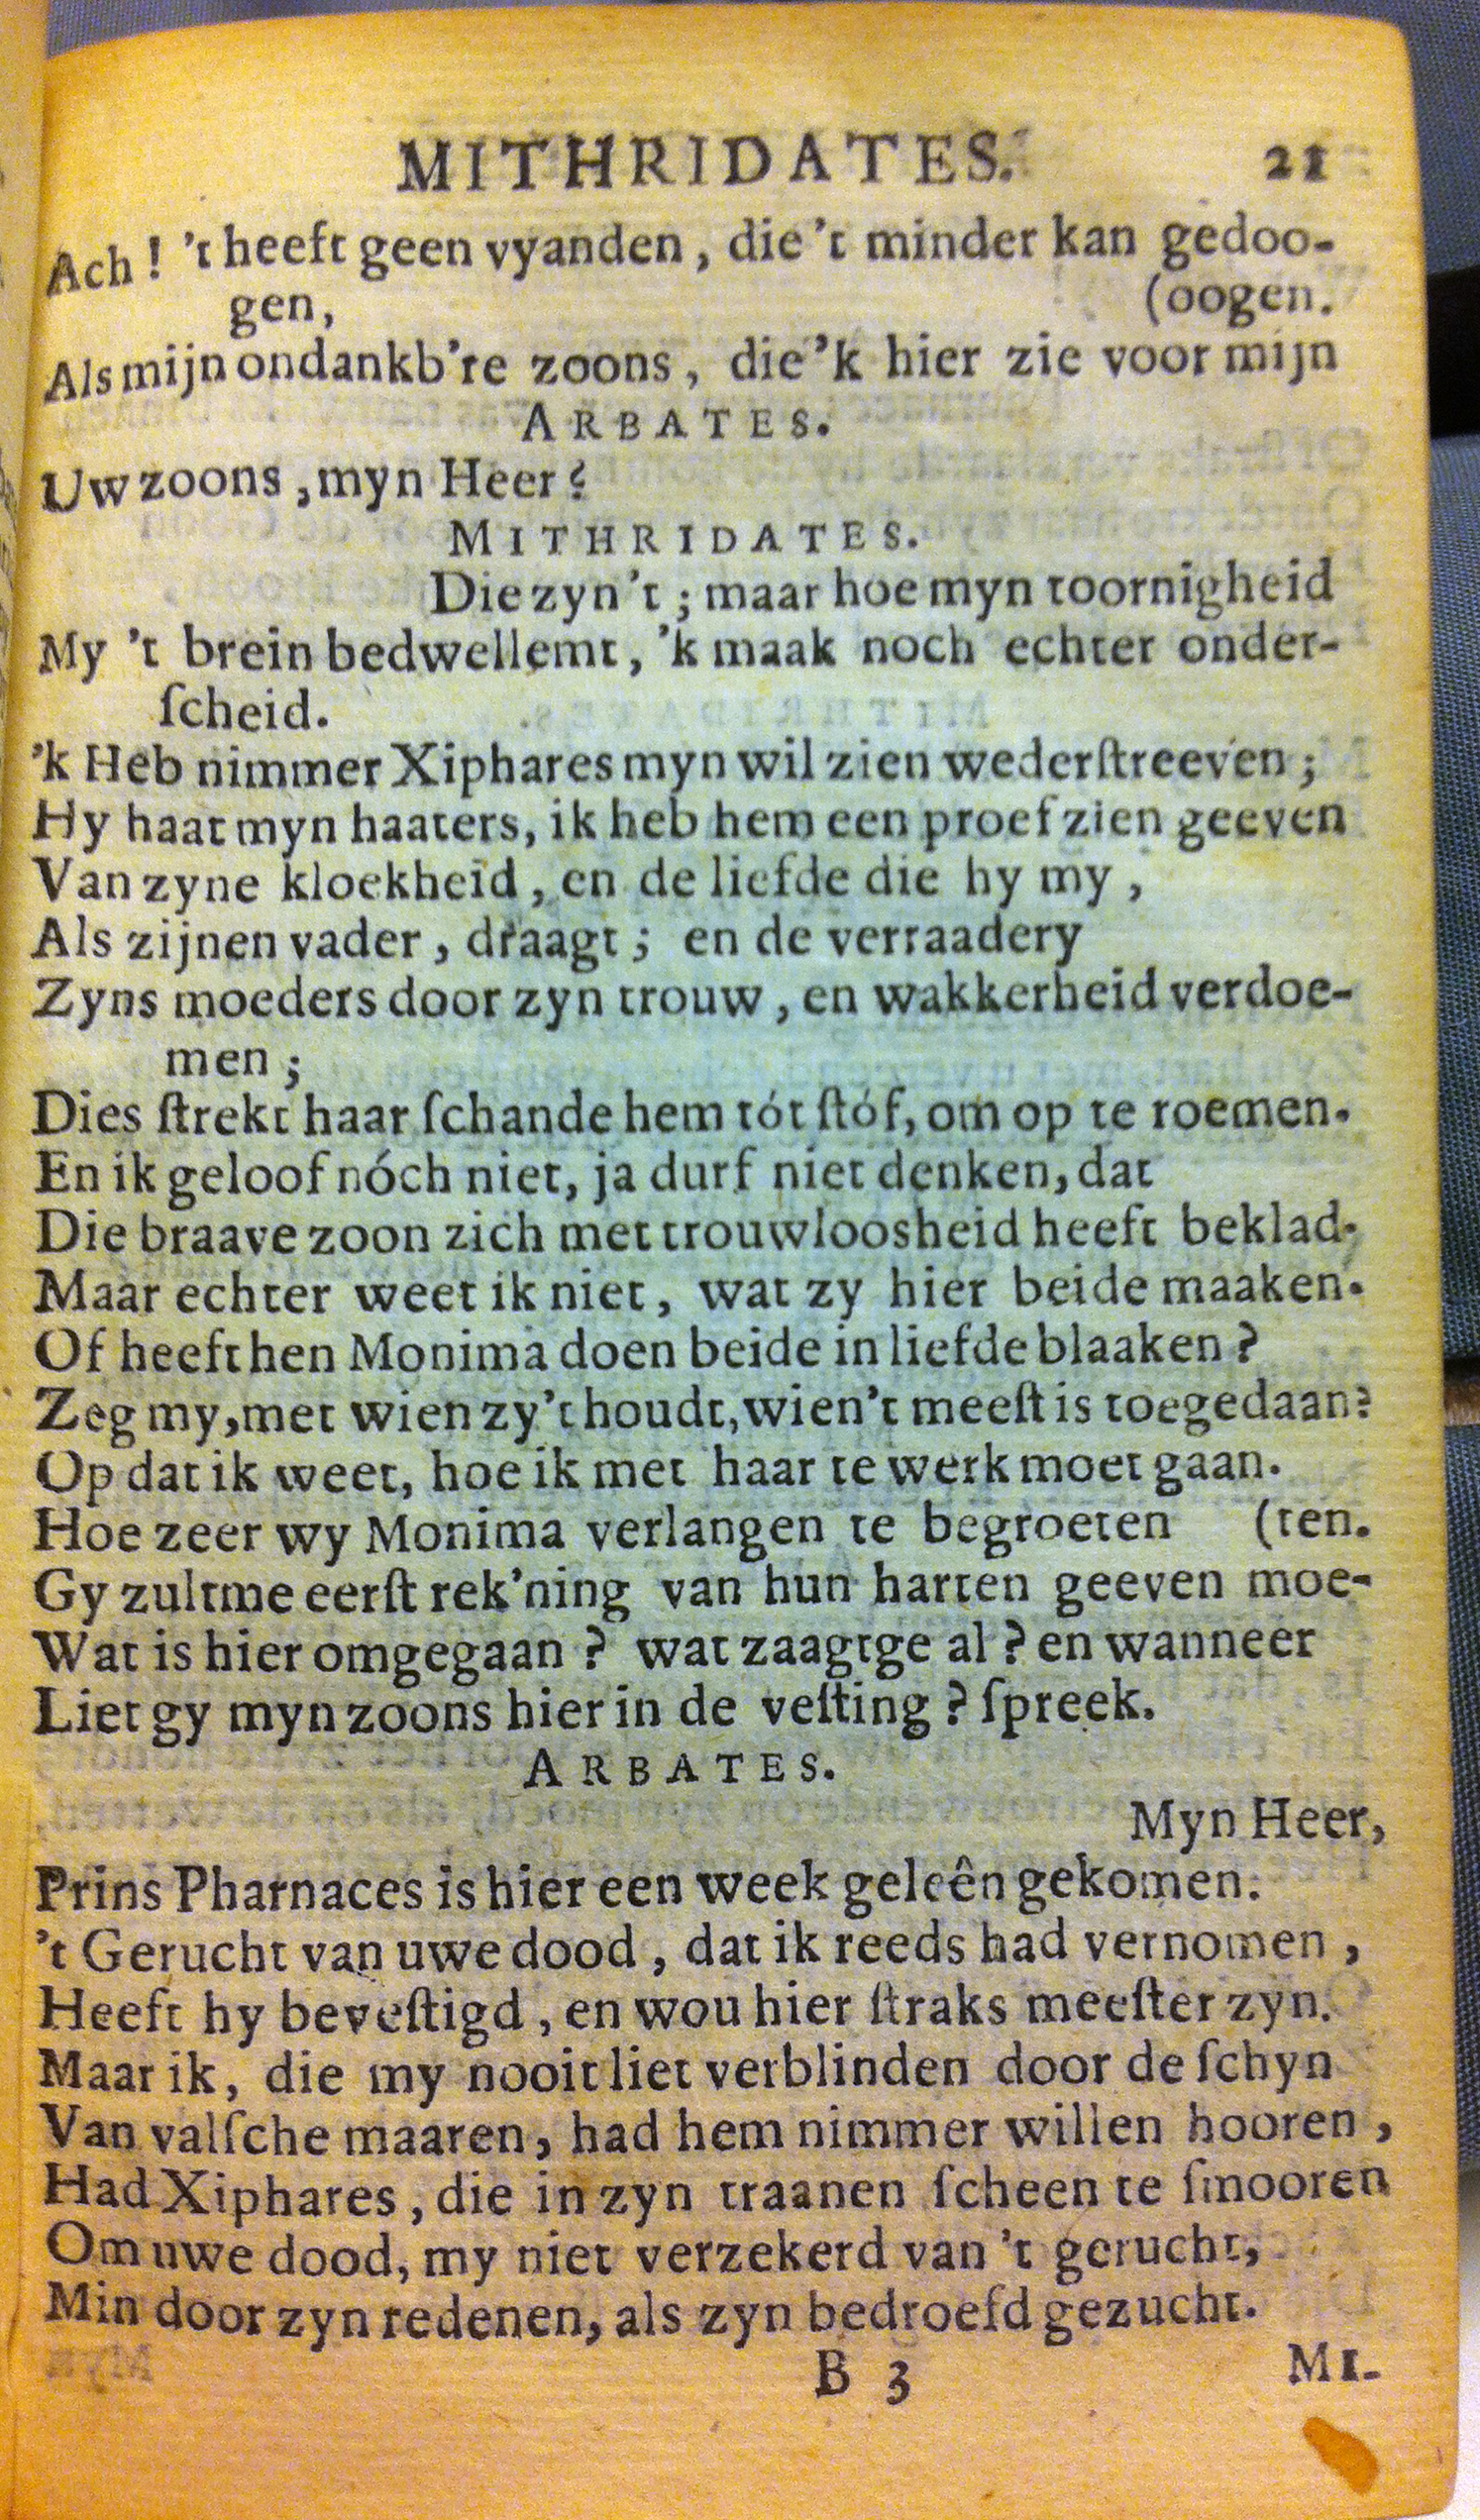 MITHRIDATES. 21
Ach! 't heeft geen vyanden, die 't minder kan gedoo-
gen, (oogen.
Als mijn ondankb're zoons, die 'k hier zie voor mijn
ARBATES.
Uw zoons, myn Heer?
MITHRIDATES.
Die zyn 't; maar hoe myn toornigheid
My 't brein bedwellemt, 'k maak noch echter onder-
ſcheid.
'k Heb nimmer Xiphares myn wil zien wederſtreeven;
Hy haat myn haaters, ik heb hem een proef zien geeven
Van zyne kloekheid, en de liefde die hy my,
Als zijnen vader, draagt; en de verraadery
Zyns moeders door zyn trouw, en wakkerheid verdoe-
men;
Dies ſtrekt haar ſchande hem tót ſtóf, om op te roemen.
En ik geloof nóch niet, ja durf niet denken, dat
Die braave zoon zich met trouwloosheid heeft beklad.
Maar echter weet ik niet, wat zy hier beide maaken.
Of heeft hen Monima doen beide in liefde blaaken?
Zeg my, met wien zy 't houdt, wien 't meeſt is toegedaan?
Op dat ik weet, hoe ik met haar te werk moet gaan.
Hoe zeer wy Monima verlangen te begroeten (ten.
Gy zultme eerſt rek'ning van hun harten geeven moe-
Wat is hier omgegaan? wat zaagtge al? en wanneer
Liet gy myn zoons hier in de veſting? ſpreek.
ARBATES.
Myn Heer,
Prins Pharnaces is hier een week geleên gekomen.
't Gerucht van uwe dood, dat ik reeds had vernomen,
Heeft hy beveſtigd, en wou hier ſtraks meeſter zyn.
Maar ik, die my nooit liet verblinden door de ſchyn
Van valſche maaren, had hem nimmer willen hooren,
Had Xiphares, die in zyn traanen ſcheen te ſmooren
Om uwe dood, my niet verzekerd van 't gerucht,
Min door zyn redenen, als zyn bedroefd gezucht.
B 3 MI-